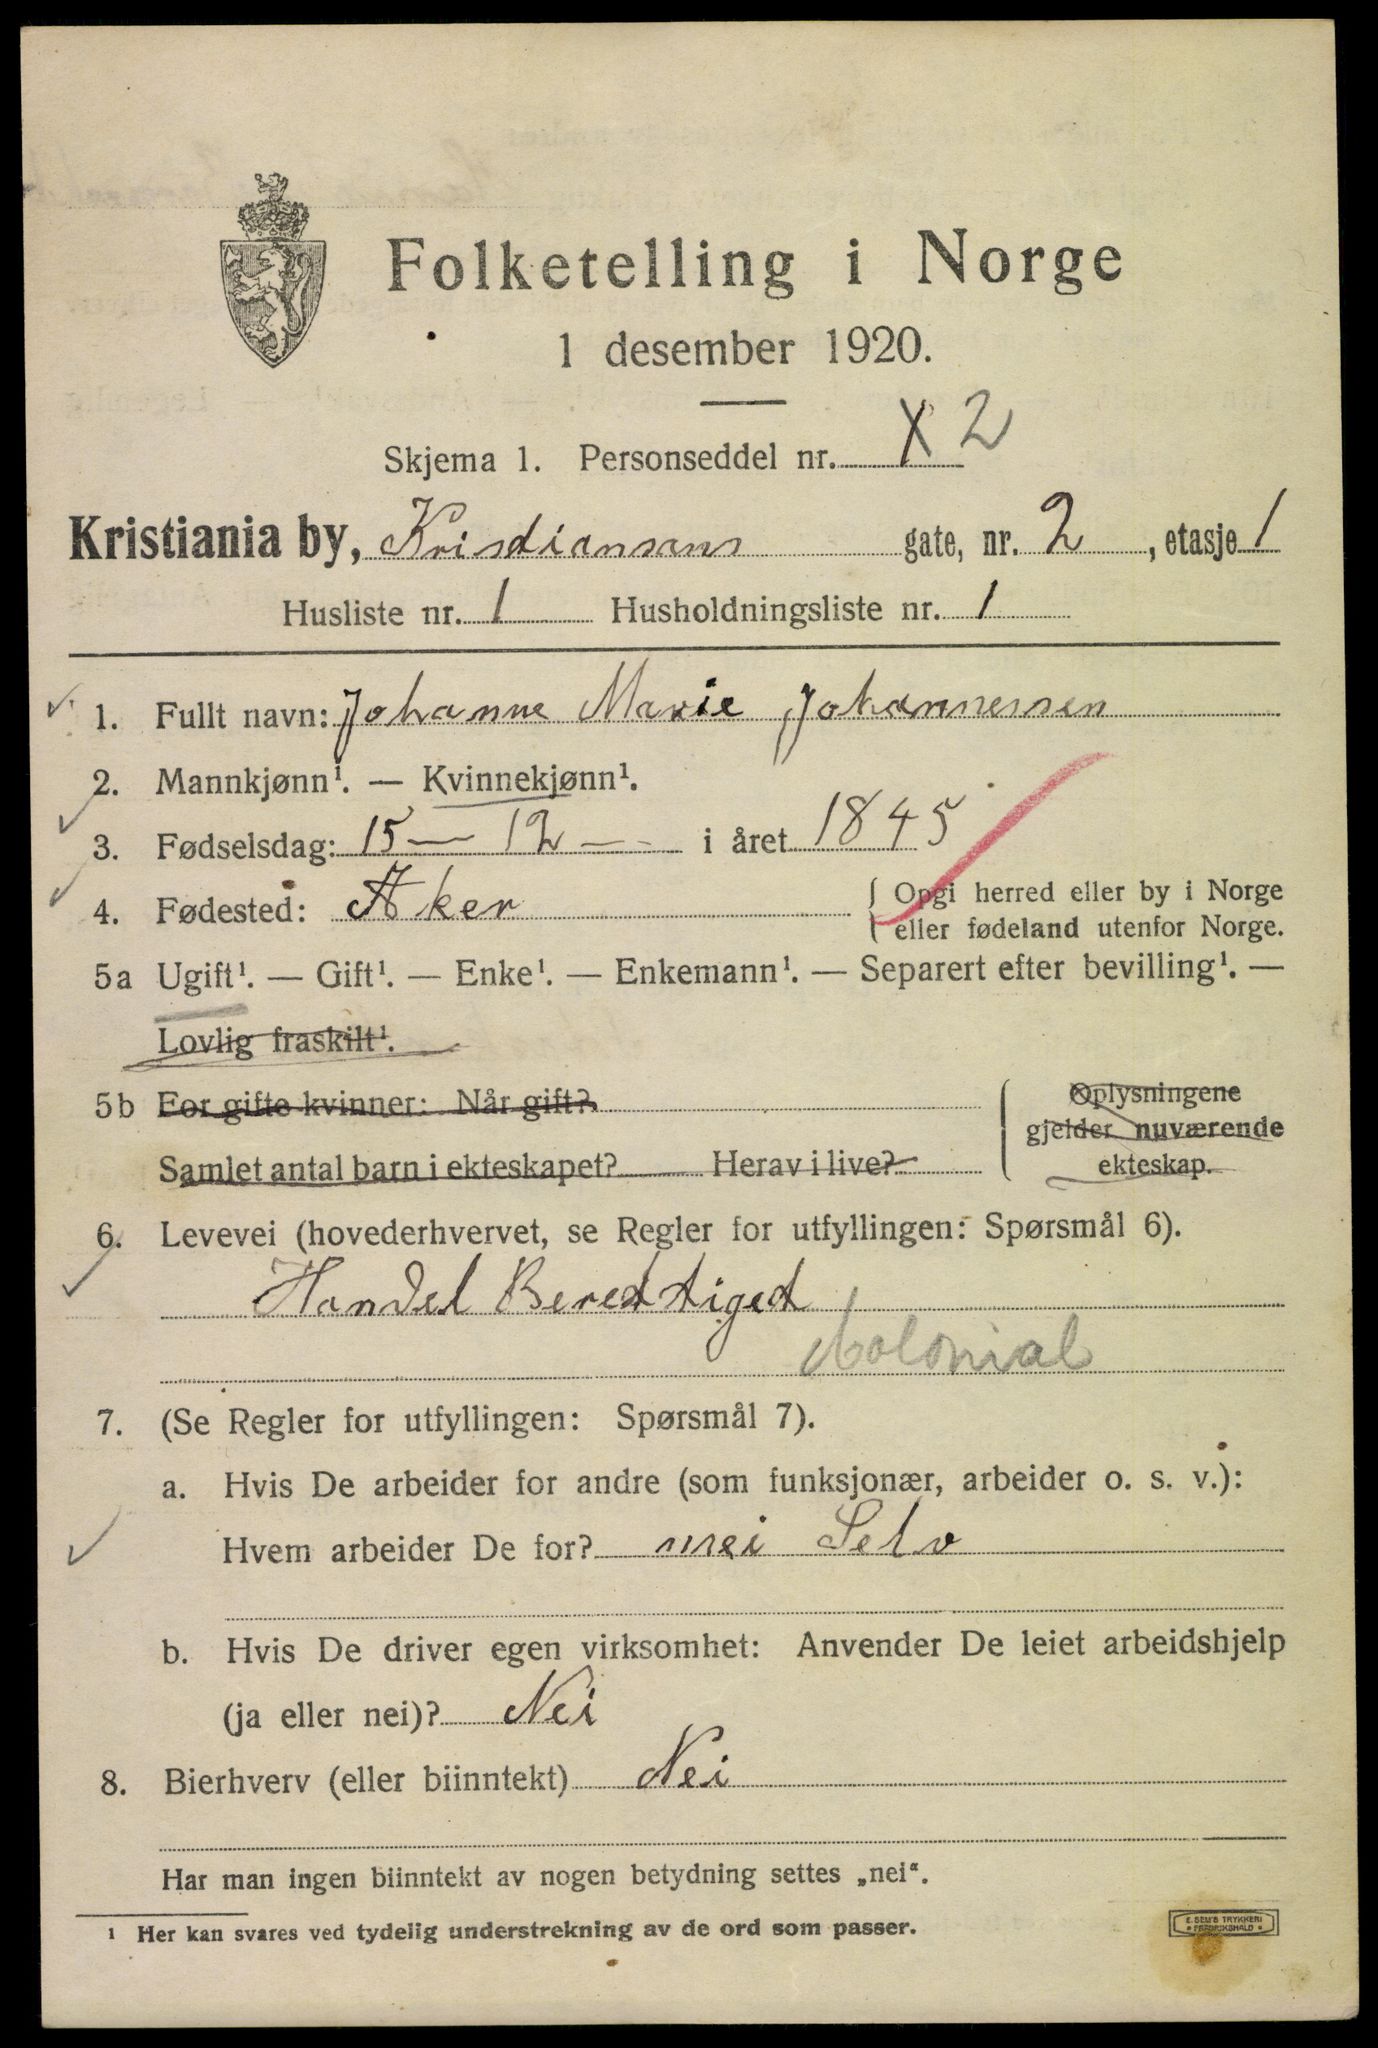 Folketelling i Norge
1 desember 1920.
Skjema 1. Personseddel nr. X 2
Kristiania by, Kristiansans gate, nr. 2, etasje 1
Husliste nr. 1 Husholdningsliste nr. 1
1. Fullt navn: Johanne Marie Johannessen
2. Mannkjønn¹. — Kvinnekjønn¹.
3. Fødselsdag: 15 — 12 — i året 1845
4. Fødested: Aker { Opgi herred eller by i Norge
eller fødeland utenfor Norge.
5a Ugift¹. — Gift¹. — Enke¹. — Enkemann¹. — Separert efter bevilling¹. —
Lovlig fraskilt¹.
5b For gifte kvinner: Når gift? { Oplysningene
gjelder nuværende
Samlet antal barn i ekteskapet? Herav i live? ekteskap.
6. Levevei (hovederhvervet, se Regler for utfyllingen: Spørsmål 6).
Handel Berettiget
Colonial
7. (Se Regler for utfyllingen: Spørsmål 7).
a. Hvis De arbeider for andre (som funksjonær, arbeider o. s. v.):
Hvem arbeider De for? mei Selv
b. Hvis De driver egen virksomhet: Anvender De leiet arbeidshjelp
(ja eller nei)? Nei
8. Bierhverv (eller biinntekt) Nei
Har man ingen biinntekt av nogen betydning settes „nei".
¹ Her kan svares ved tydelig understrekning av de ord som passer.
E. SEM'S TRYKKERI
FREDRIKSHALD